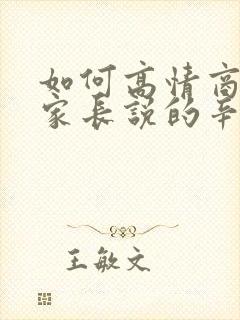 如何高情商
家长说的辛
王敏文